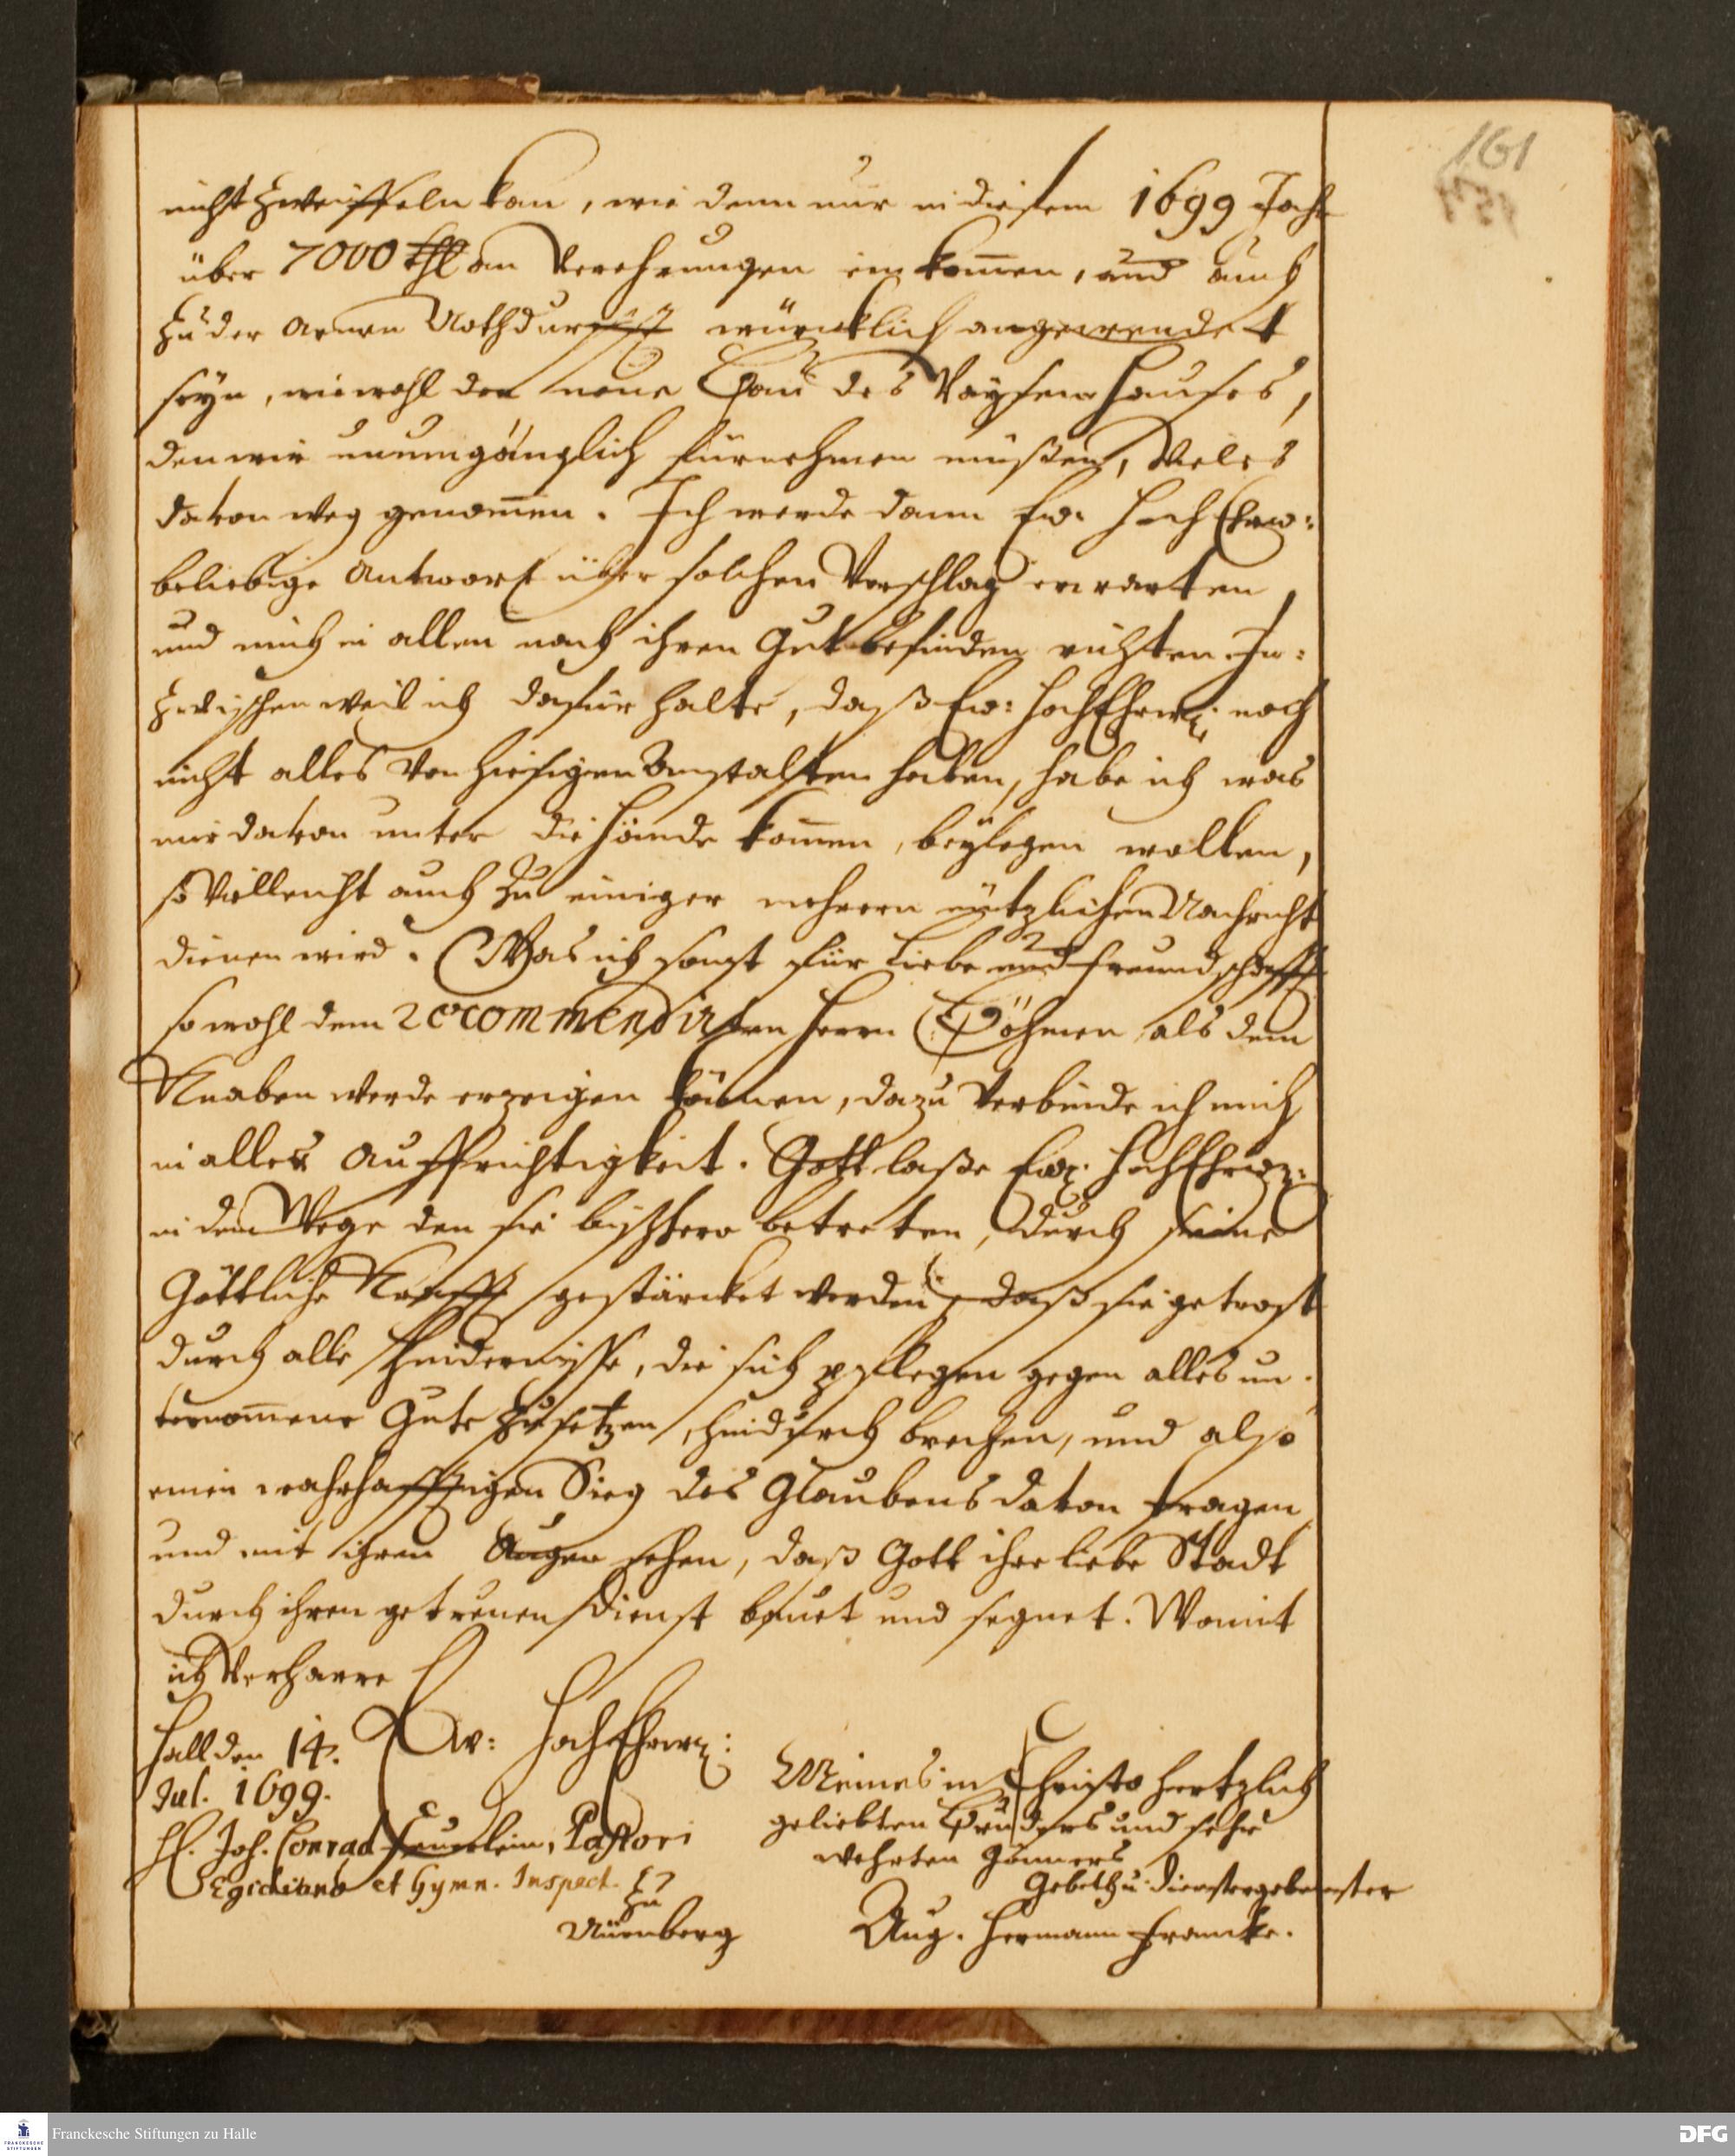 161
151
nicht zweiffeln kan, wie denn nur in diesem 1699 Jahr
über 7000 thl an Verehrungen ein kom̅en, und auch
zu der armen Nothdurfft würcklich angewendet
seyn, wiewohl der neue Bau des Waysenhauses,
den wir unumgänglich fürnehmen müßen, vieles
davon weg genom̅en. Ich werde dann Ew. HochEhrw:
beliebige Antwort über solchen Vorschlag erwarten,
und mich in allen nach ihren Gutbefinden richten. In:
zwischen weil ich dafür halte, daß Ew: HochEhrw: noch
nicht alles von hiesigen Anstalten haben, habe ich was
mir davon unter die Hände kom̅en, beylegen wollen,
so vielleicht auch zu einiger mehrern nützlichen Nachricht
dienen wird. Was ich sonst für Liebe und Freundschafft
so wohl dem recommendirten Herrn Böhmen als dem
Knaben werde erzeigen können, dazu verbinde ich mich
in aller Auffrichtigkeit. Gott laße Ew. HochEhrw:
in dem Wege den sie bißhero betreten, durch seine
Göttliche Krafft gestärcket werden, daß sie getrost
durch alle Hindernisse, die sich pflegen gegen alles un:
ternom̅ene Gute zu setzen, hindurch brechen, und also
einen wahrhafftigen Sieg des Glaubens davon tragen
und mit ihren Augen sehen, daß Gott ihre liebe Stadt
durch ihren getreuen Dienst bauet und segnet. Womit
ich verharre
Ew: HochEhrw:
Hall den 14.
Jul. 1699.
H. Joh. Conrad Feuerlein, Pastori
Egidiano et Gymn. Inspect.
zu
Nürnberg
Meines in Christo hertzlich
geliebten Bruders und sehr
wehrten Gönners
Gebeth u. dienstergebenster
Aug. Hermann Francke.
FRANCKESCHE
STIFTUNGEN
Franckesche Stiftungen zu Halle
DFG